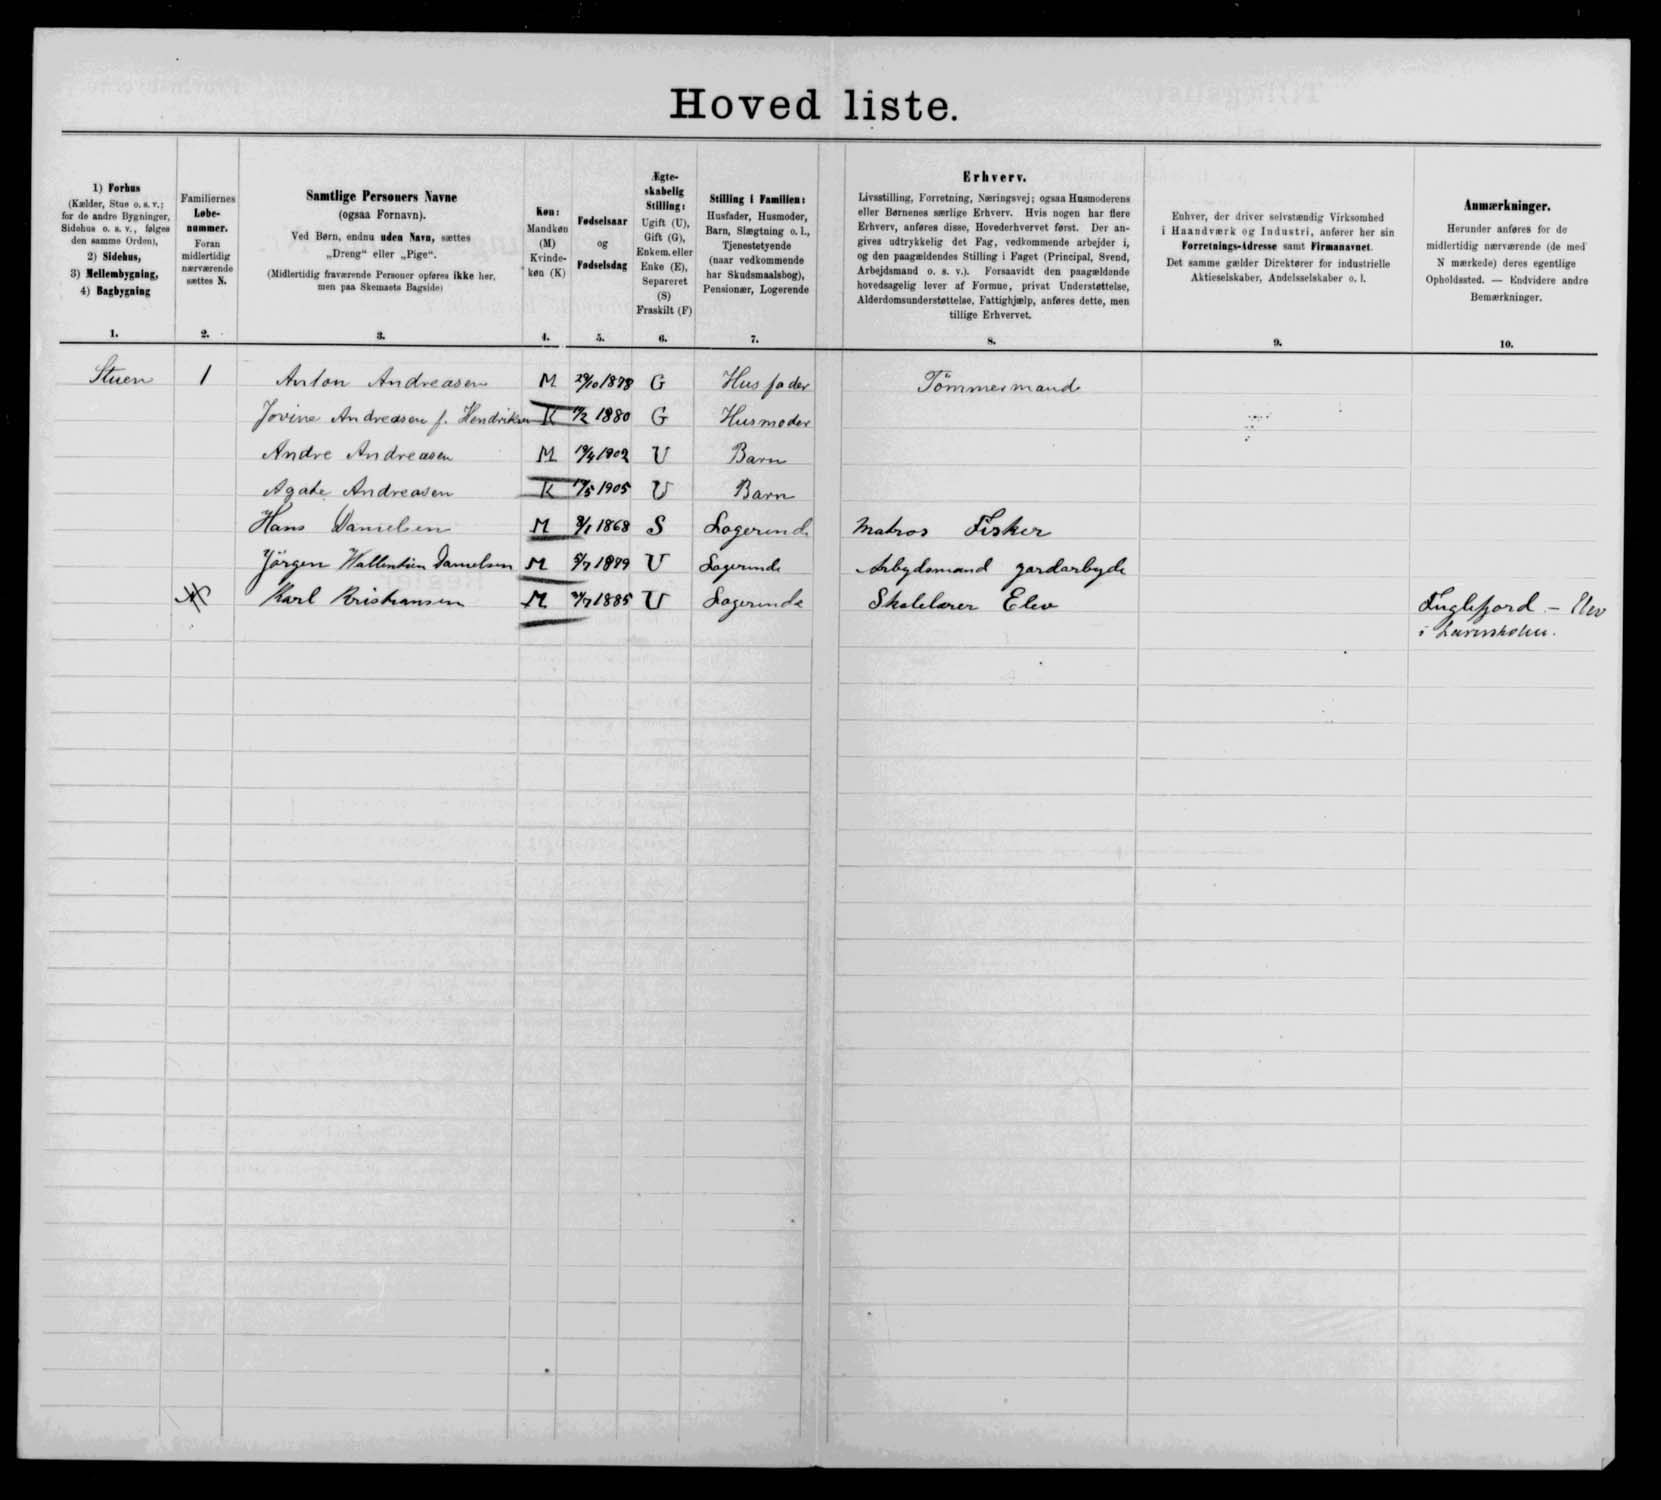 Hoved liste.
1) Forhus
(Kælder, Stue o. s. v.;
for de andre Bygninger,
Sidehus o. s. v., følges
den samme Orden),
2) Sidehus,
3) Mellembygning,
4) Bagbygning
1.
Familiernes
Løbe-
nummer.
Foran
midlertidig
nærværende
sættes N.
2.
Samtlige Personers Navne
(ogsaa Fornavn).
Ved Børn, endnu uden Navn, sættes
„Dreng“ eller „Pige“.
(Midlertidig fraværende Personer opføres ikke her,
men paa Skemaets Bagside)
3.
Køn:
Mandkøn
(M)
Kvinde-
køn (K)
4.
Fødselsaar
og
Fødselsdag
5.
Ægte-
skabelig
Stilling:
Ugift (U),
Gift (G),
Enkem. eller
Enke (E),
Separeret
(S)
Fraskilt (F)
6.
Stilling i Familien:
Husfader, Husmoder,
Barn, Slægtning o. l.,
Tjenestetyende
(naar vedkommende
har Skudsmaalsbog),
Pensionær, Logerende
7.
Erhverv.
Livsstilling, Forretning, Næringsvej; ogsaa Husmoderens
eller Børnenes særlige Erhverv. Hvis nogen har flere
Erhverv, anføres disse, Hovederhvervet først. Der an-
gives udtrykkelig det Fag, vedkommende arbejder i,
og den paagældendes Stilling i Faget (Principal, Svend,
Arbejdsmand o. s. v.). Forsaavidt den paagældende
hovedsagelig lever af Formue, privat Understøttelse,
Alderdomsunderstøttelse, Fattighjælp, anføres dette, men
tillige Erhvervet.
8.
Enhver, der driver selvstændig Virksomhed
i Haandværk og Industri, anfører her sin
Forretnings-Adresse samt Firmanavnet.
Det samme gælder Direktører for industrielle
Aktieselskaber, Andelsselskaber o. l.
9.
Anmærkninger.
Herunder anføres for de
midlertidig nærværende (de med
N mærkede) deres egentlige
Opholdssted. — Endvidere andre
Bemærkninger.
10.
Stuen 1 Anton Andreasen M 29/10 1878 G Husfader Tömmermand
Jovine Andreasen f. Hendriksen K 1880 G Husmoder
Andre Andreasen M 19/4 1902 U Barn
Agate Andreasen K 1905 U Barn
Hans Danielsen M 1868 S Logerende Matros Fisker
Jörgen Wallentin Danielsen M 1879 U Logerende Arbydsmand jordarbyde
Karl Kristiansen M 1885 U Logerende Skolelærer Elev Fuglefjord – Elev
i